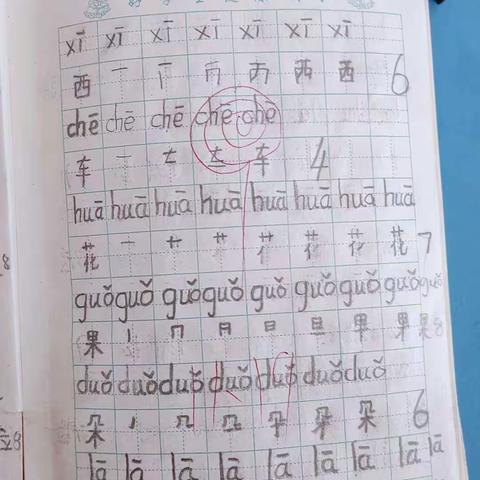 xī xī xī xī xī xī xī
西 一 丆 丙 襾 西 西 6
chē chē chē chē chē
车 一 𠂇 车 4
huā huā huā huā huā huā huā huā
花 一 十 艹 花 7
guǒ guǒ guǒ guǒ guǒ guǒ guǒ guǒ guǒ
果 丨 冂 日 日 旦 甲 果 果 8
duǒ duǒ duǒ duǒ duǒ duǒ duǒ
朵 朵 朵 6
lā lā lā lā lā lā lā lā lā